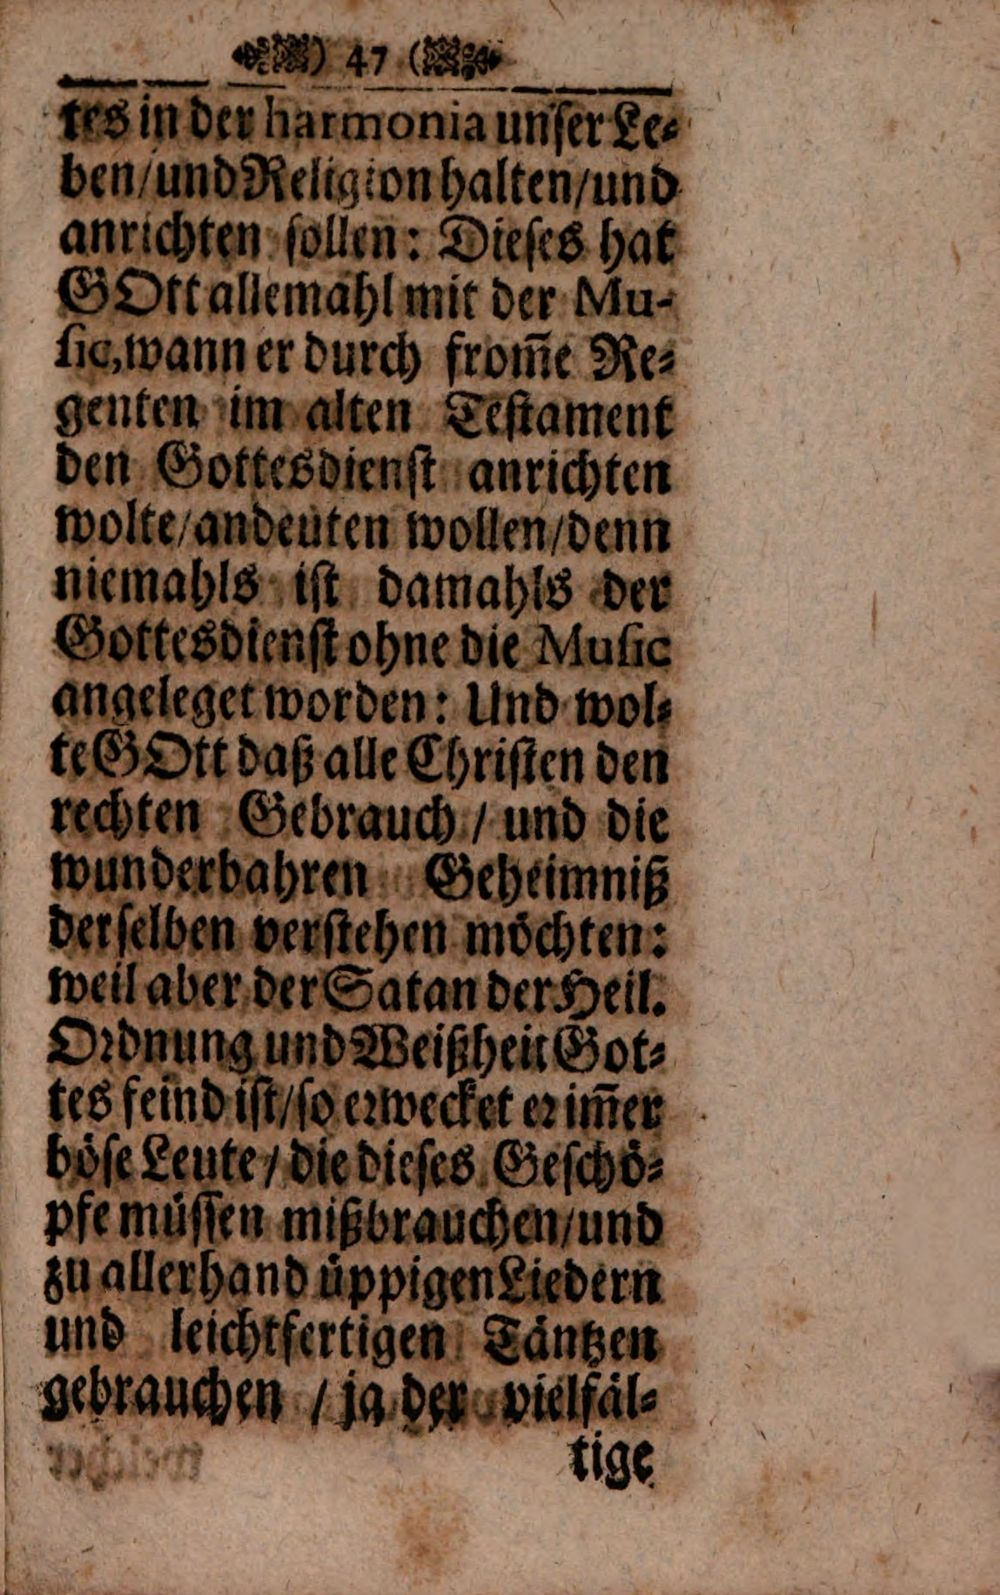 ) 47 (
tes in der harmonia unſer Le⸗
ben/und Religion halten/und
anrichten ſollen: Dieſes hat
GOtt allemahl mit der Mu-
ſic, wann er durch from̃e Re⸗
genten im alten Teſtament
den Gottesdienſt anrichten
wolte/andeuten wollen/denn
niemahls iſt damahls der
Gottesdienſt ohne die Muſic
angeleget worden: Und wol⸗
te GOtt daß alle Chriſten den
rechten Gebrauch / und die
wunderbahren Geheimniß
derſelben verſtehen möchten:
weil aber der Satan der Heil.
Ordnung und Weißheit Got⸗
tes feind iſt/ſo erwecket er im̃er
böſe Leute / die dieſes Geſchö⸗
pfe müſſen mißbrauchen/und
zu allerhand üppigen Liedern
und leichtfertigen Täntzen
gebrauchen / ja der vielfäl⸗
tige